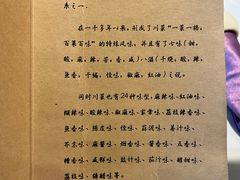 系之一.
在一千多年以来,形成了川菜"一菜一格,
百菜百味"的特殊风味,并且有了七味(甜,
酸,麻,辣,苦,香,咸)八滋(干烧,酸,辣,
鱼香,干煸,怪味,椒麻,红油)之说。
同时川菜也有24种味型,麻辣味、红油味、
糊辣味、酸辣味、椒麻味、家常味、荔枝辣香味、
鱼香味、陈皮味、怪味、蒜泥味、姜汁味、
芥末味、麻酱味、烟香味、酱香味、五香味、
糟香味、咸鲜味、豉汁味、茄汁味、醋椒味、
荔枝味、糖醋味等。